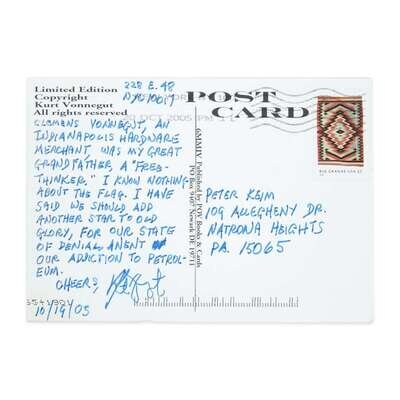 Limited Edition
Copyright
Kurt Vonnegut
All rights reserved
228 E. 48
NYC 10017
POST
CARD
OCT 2005 PM
CLEMENS VONNEGUT, AN
INDIANAPOLIS HARDWARE
MERCHANT, WAS MY GREAT
GRANDFATHER, A "FREE-
THINKER." I KNOW NOTHING
ABOUT THE FLAG. I HAVE
SAID WE SHOULD ADD
ANOTHER STAR TO OLD
GLORY, FOR OUR STATE
OF DENIAL ANENT
OUR ADDICTION TO PETROL-
EUM.
CHEERS,
10/19/05
6MMIV POV Books & Cards
PO Box 9407 Newark DE 19711
RIO GRANDE USA 37
PETER KEIM
109 ALLEGHENY DR.
NATRONA HEIGHTS
PA. 15065